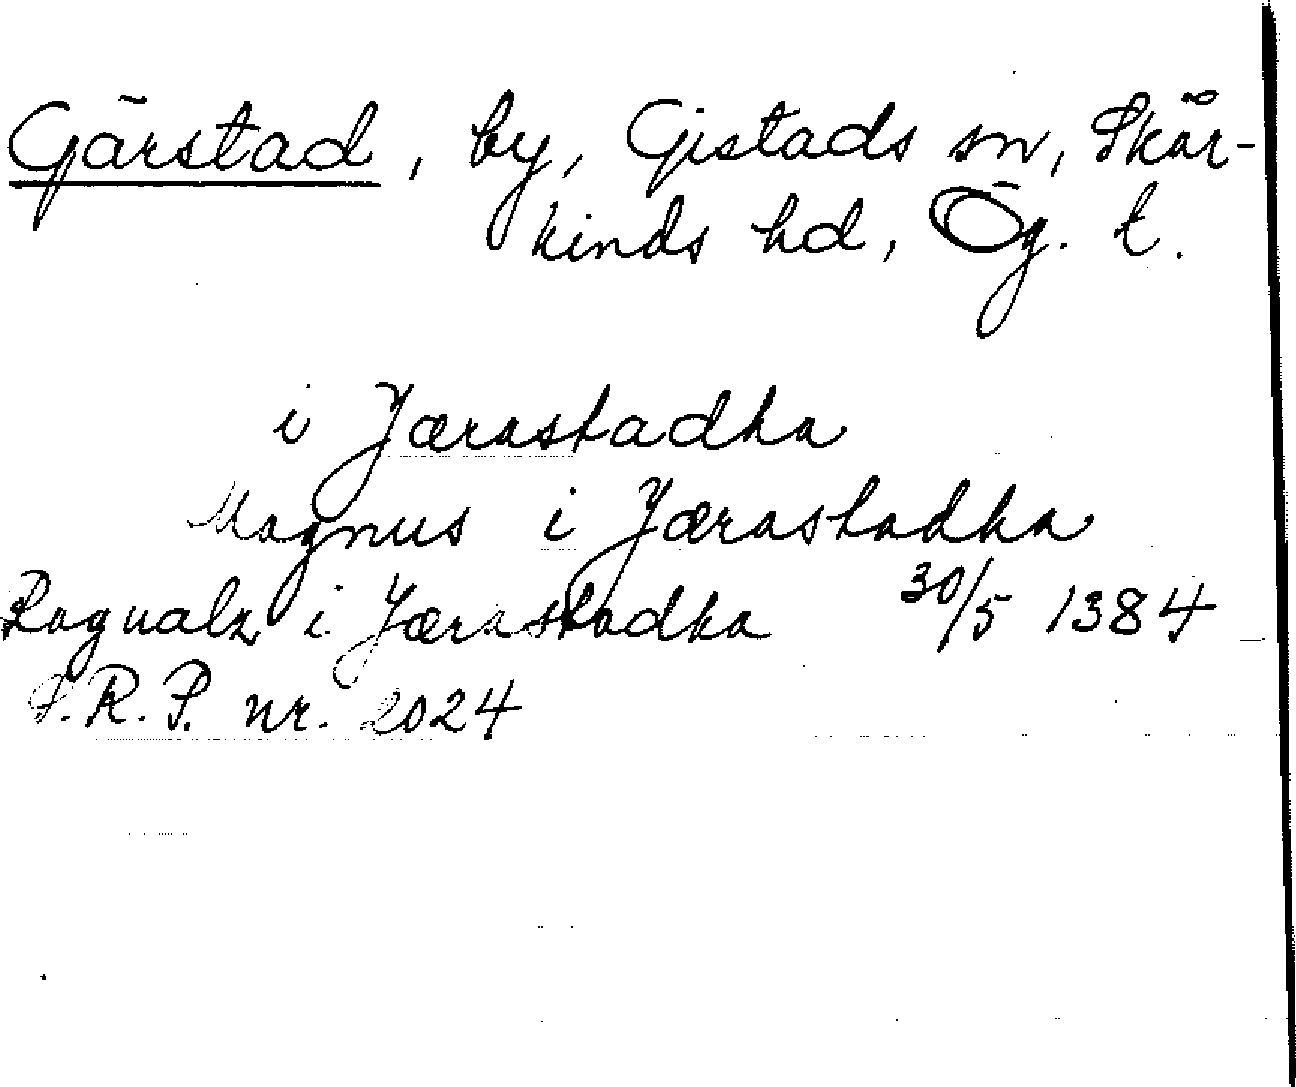 Gärstad, by, Gistads sn, Skär-
kinds hd, Ög. t.
i Jærastadha
Magnus i Jærastadha
Ragualz i Jærastadha 30/5 1384
S.R.P. nr. 2024